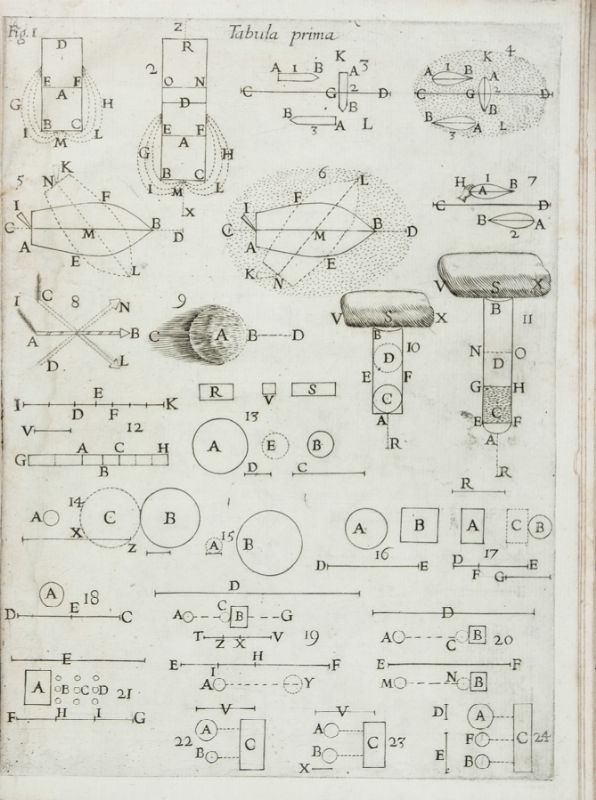 Fig. 1
Tabula prima
D
E F
A
G H
B C
I M L
2
Z
R
O N
D
E F
A
G H
B C
I M L
X
3
K
A 1 B A
C G 2 D
B
B 3 A L
4
K
A 1 B A
C G 2 D
B
B 3 A L
5
K
N F
I
C M B D
A
E
L
6
L
F
I
C M B D
A
E
K N
7
H 1
A B
C D
B A
2
8
C N
I
A B
D L
9
C A B D
10
V S X
B
D
E F
C
A
R
11
V S X
B
N O
D
G H
C
E F
A
R
12
E
I K
D F
V
A C H
G
B
13
R V S
A E B
D C
14
A C B
X Z
15
A B
16
A B
D E
17
R
A C B
D E
F G
18
A
E
D C
19
D
C
A B G
T V
Z X
H
E F
I
A Y
20
D
A C B
E F
M N B
21
E
A B C D
F H I G
22
V
A
C
B
23
V
A
C
B
X
24
D A
F C
E B